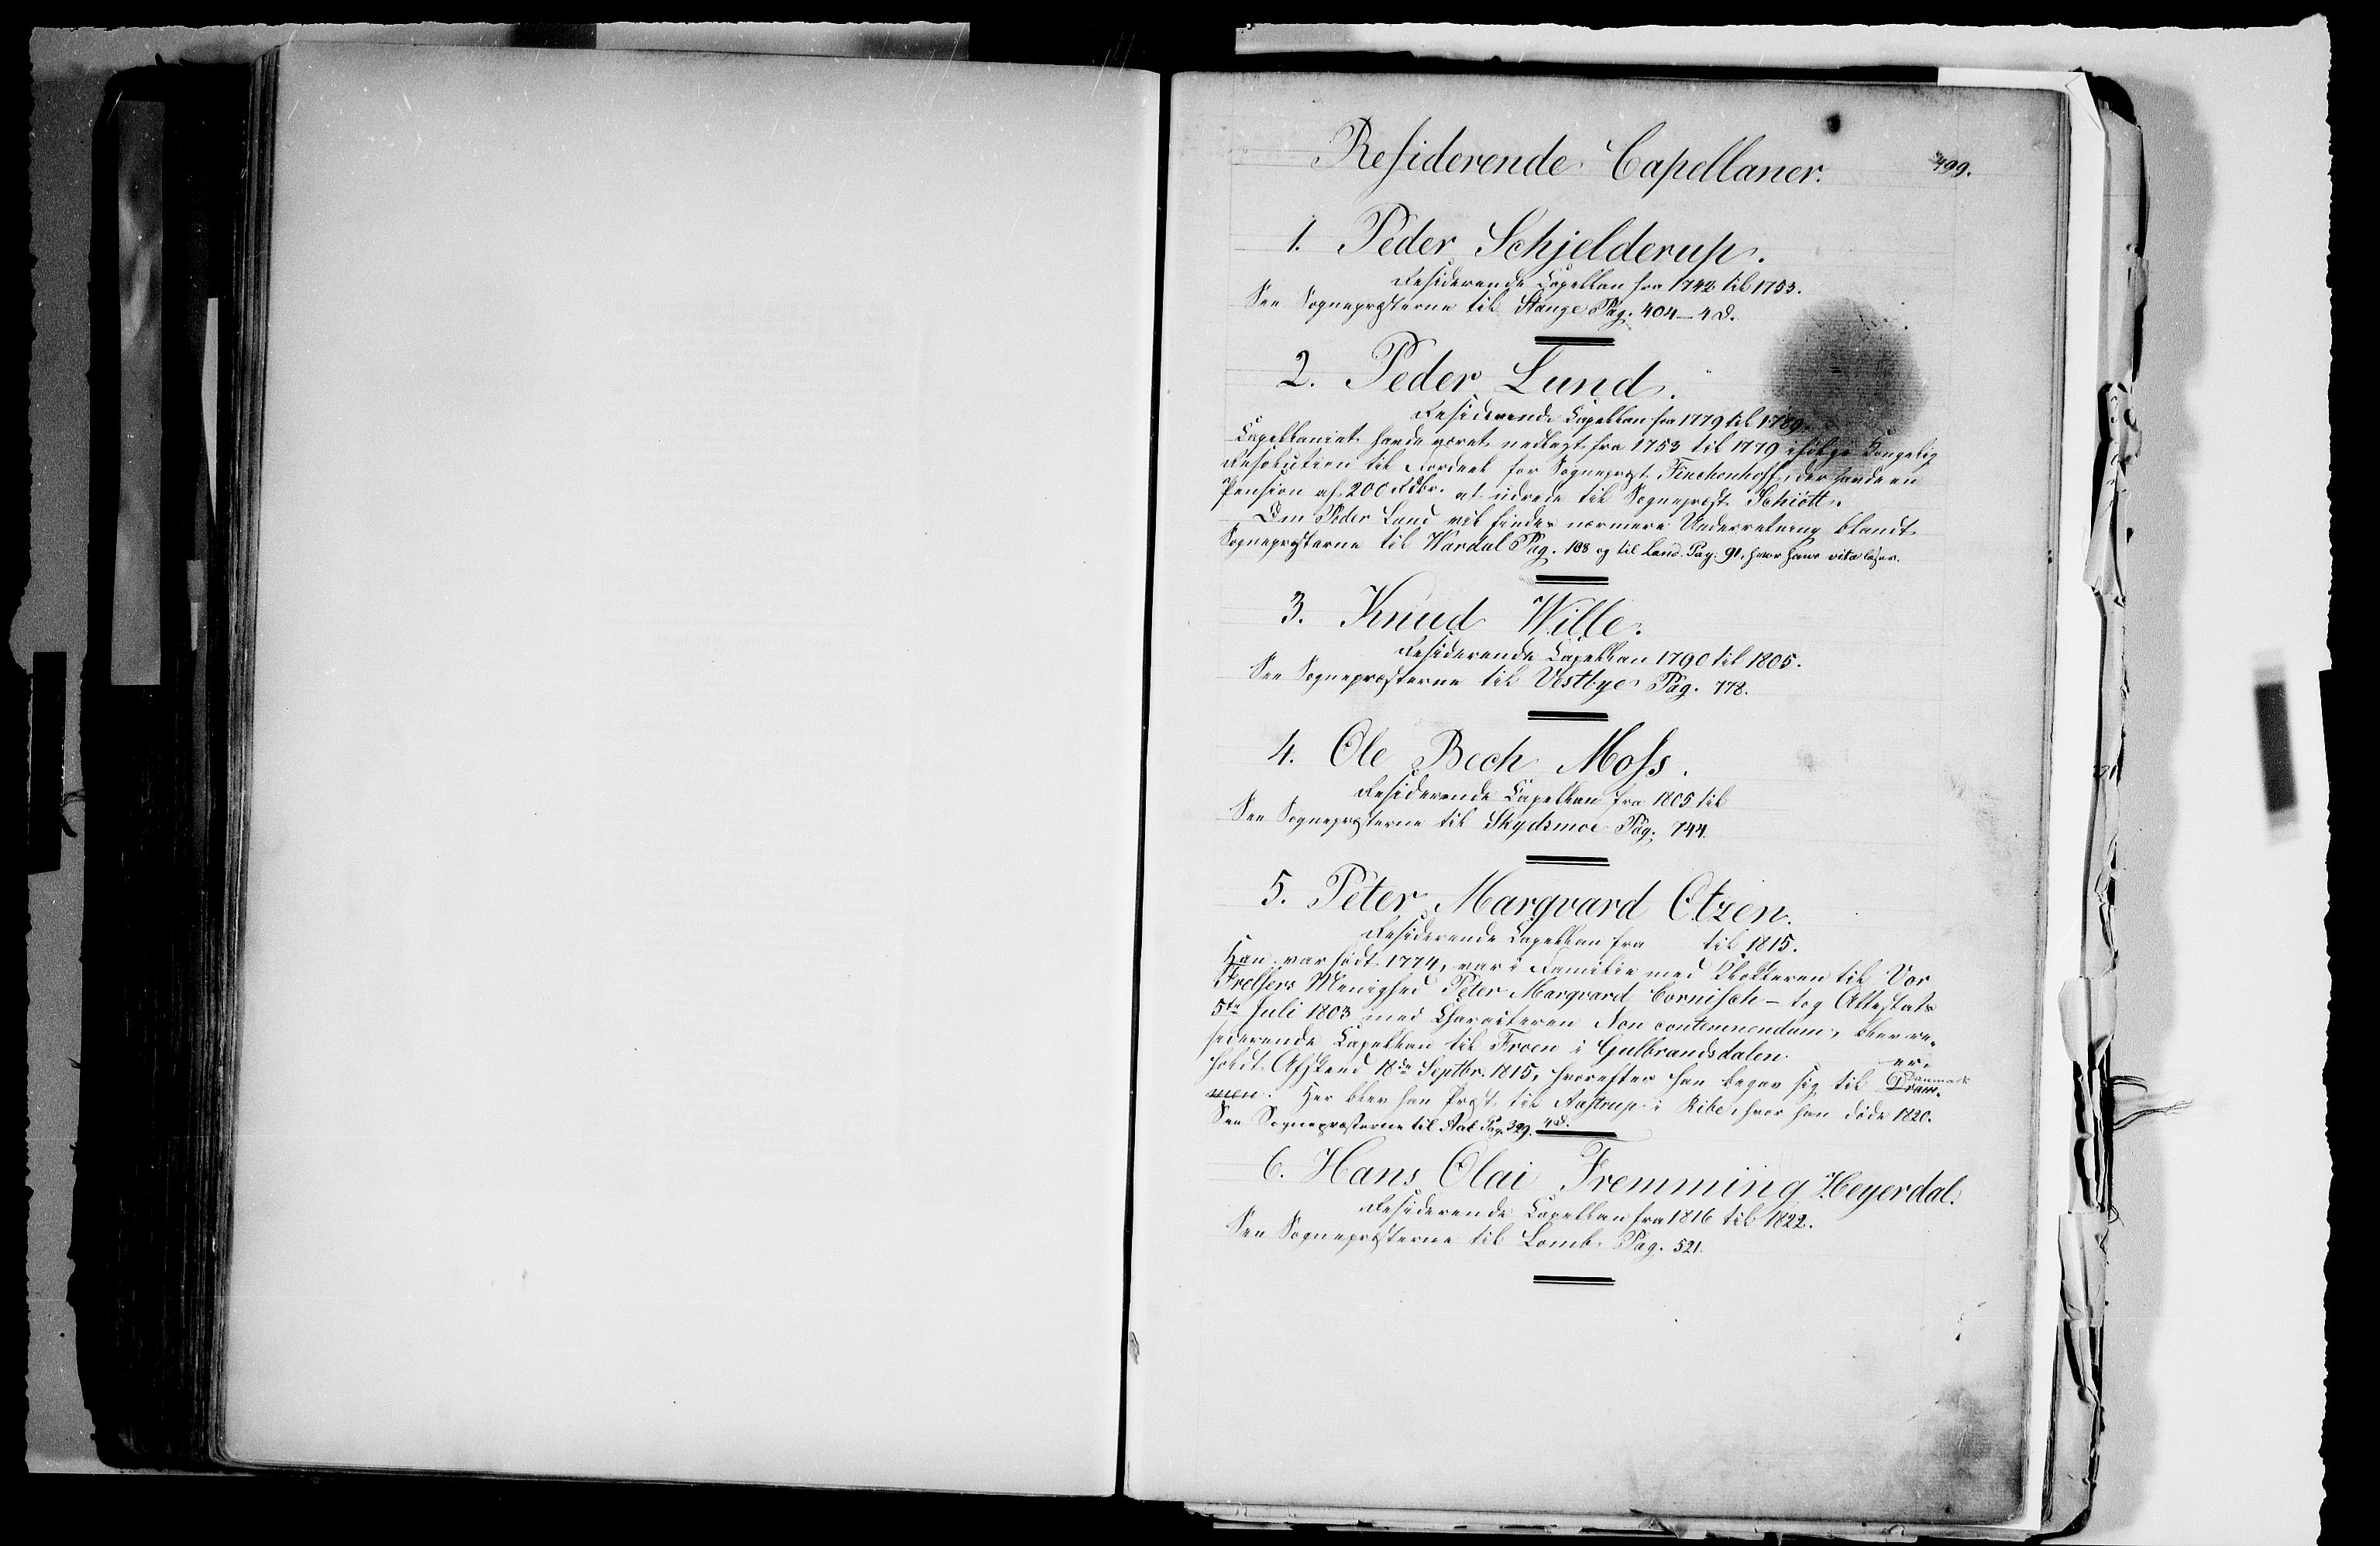 Residerende Capellaner.
499.
1. Peder Schjelderup.
Residerende Capellan fra 1742 til 1753.
See Sognepræsterne til Stange Pag. 404 – 4 d.
2. Peder Lund.
Residerende Capellan fra 1779 til 1789.
Capellaniet havde været nedlagt fra 1753 til 1779 ifølge Kongelig
Resolution til Fordeel for Sognepræst Finckenhoff, der havde en
Pension af 200 Rdlr. at udrede til Sognepræst Schiött.
Om Peder Lund vil findes nærmere Underretning blandt
Sognepræsterne til Wardal Pag. 108 og til Land Pag. 91, hvor hans vita læses.
3. Knud Wille.
Residerende Capellan 1790 til 1805.
See Sognepræsterne til Vestbye Pag. 778.
4. Ole Bech Moss.
Residerende Capellan fra 1805 til
See Sognepræsterne til Skydsmoe Pag. 744.
5. Peter Marqvard Otzen.
Residerende Capellan fra til 1815.
Han var født 1774, var i Familie med Klokkeren til Vor
Frelsers Menighed Peter Marqvard Cornisch – tog Attestats
5te Juli 1803 med Characteren Non contemnendum, blev re-
siderende Capellan til Froen i Gulbrandsdalen er-
holdt Afskeed 18de Septbr. 1815, hvorefter han begav sig til Danmark
Dram-
men. Her blev han Præst til Aastrup i Ribe, hvor han døde 1820.
See Sognepræsterne til Aal Pag. 329. 4 d.
6. Hans Olai Fremming Heyerdal.
Residerende Capellan fra 1816 til 1822.
See Sognepræsterne til Lomb Pag. 521.